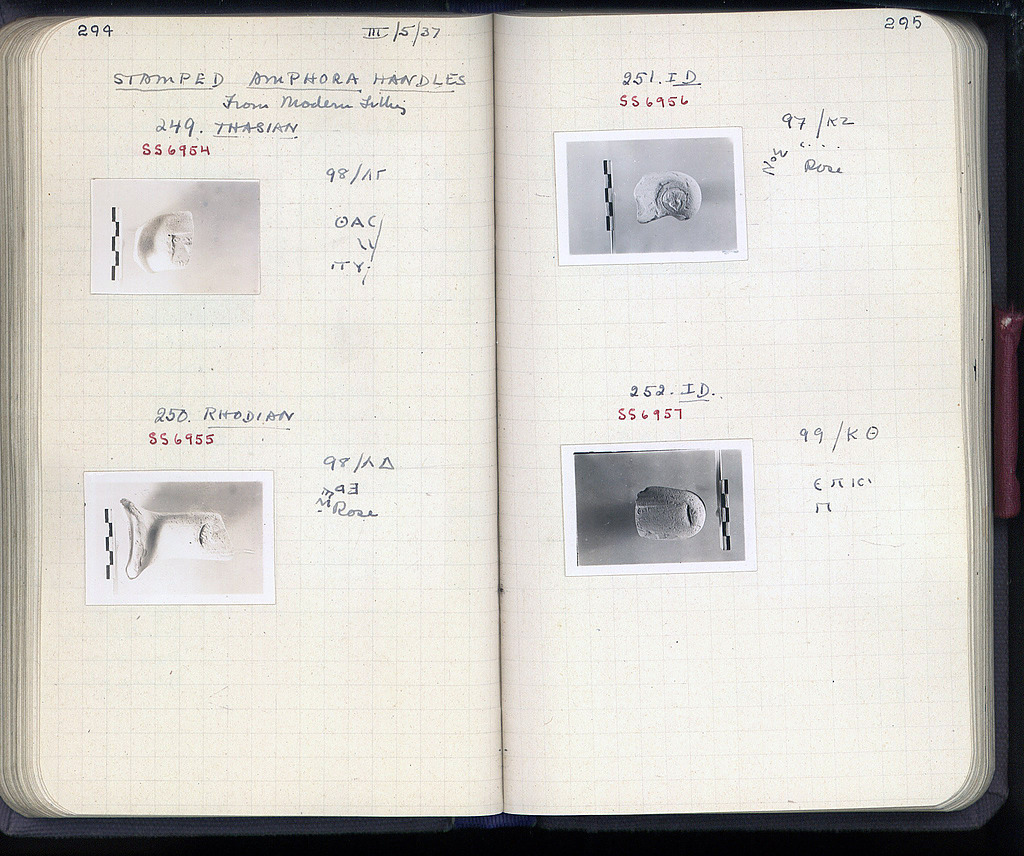 294
III/5/37
STAMPED AMPHORA HANDLES
From Modern Filling
249. THASIAN
SS6954
98/ΛΓ
ΘΑC
ΠΥ
250. RHODIAN
SS6955
98/ΛΔ
Rose
295
251. ID.
SS6956
97/ΚΖ
Rose
252. ID.
SS6957
99/ΚΘ
ЄΠΙΚΙ
Π